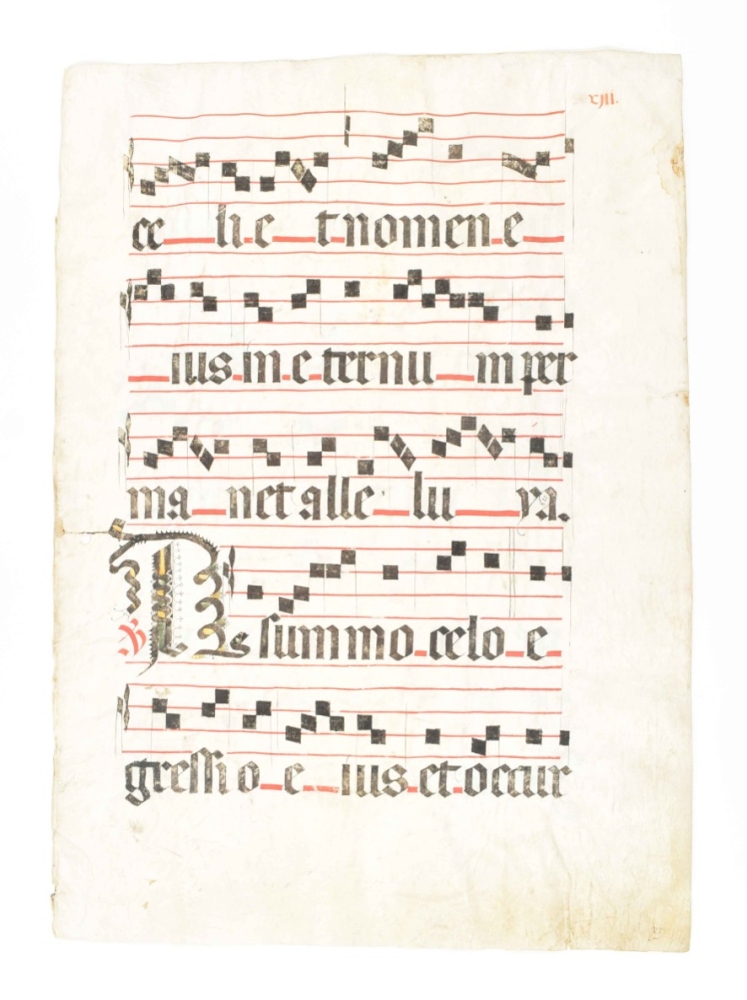 xiii.
ce li et nomen e
ius in e ternu m per
ma net alle lu ya.
R A summo celo e
gressi o e ius et occur